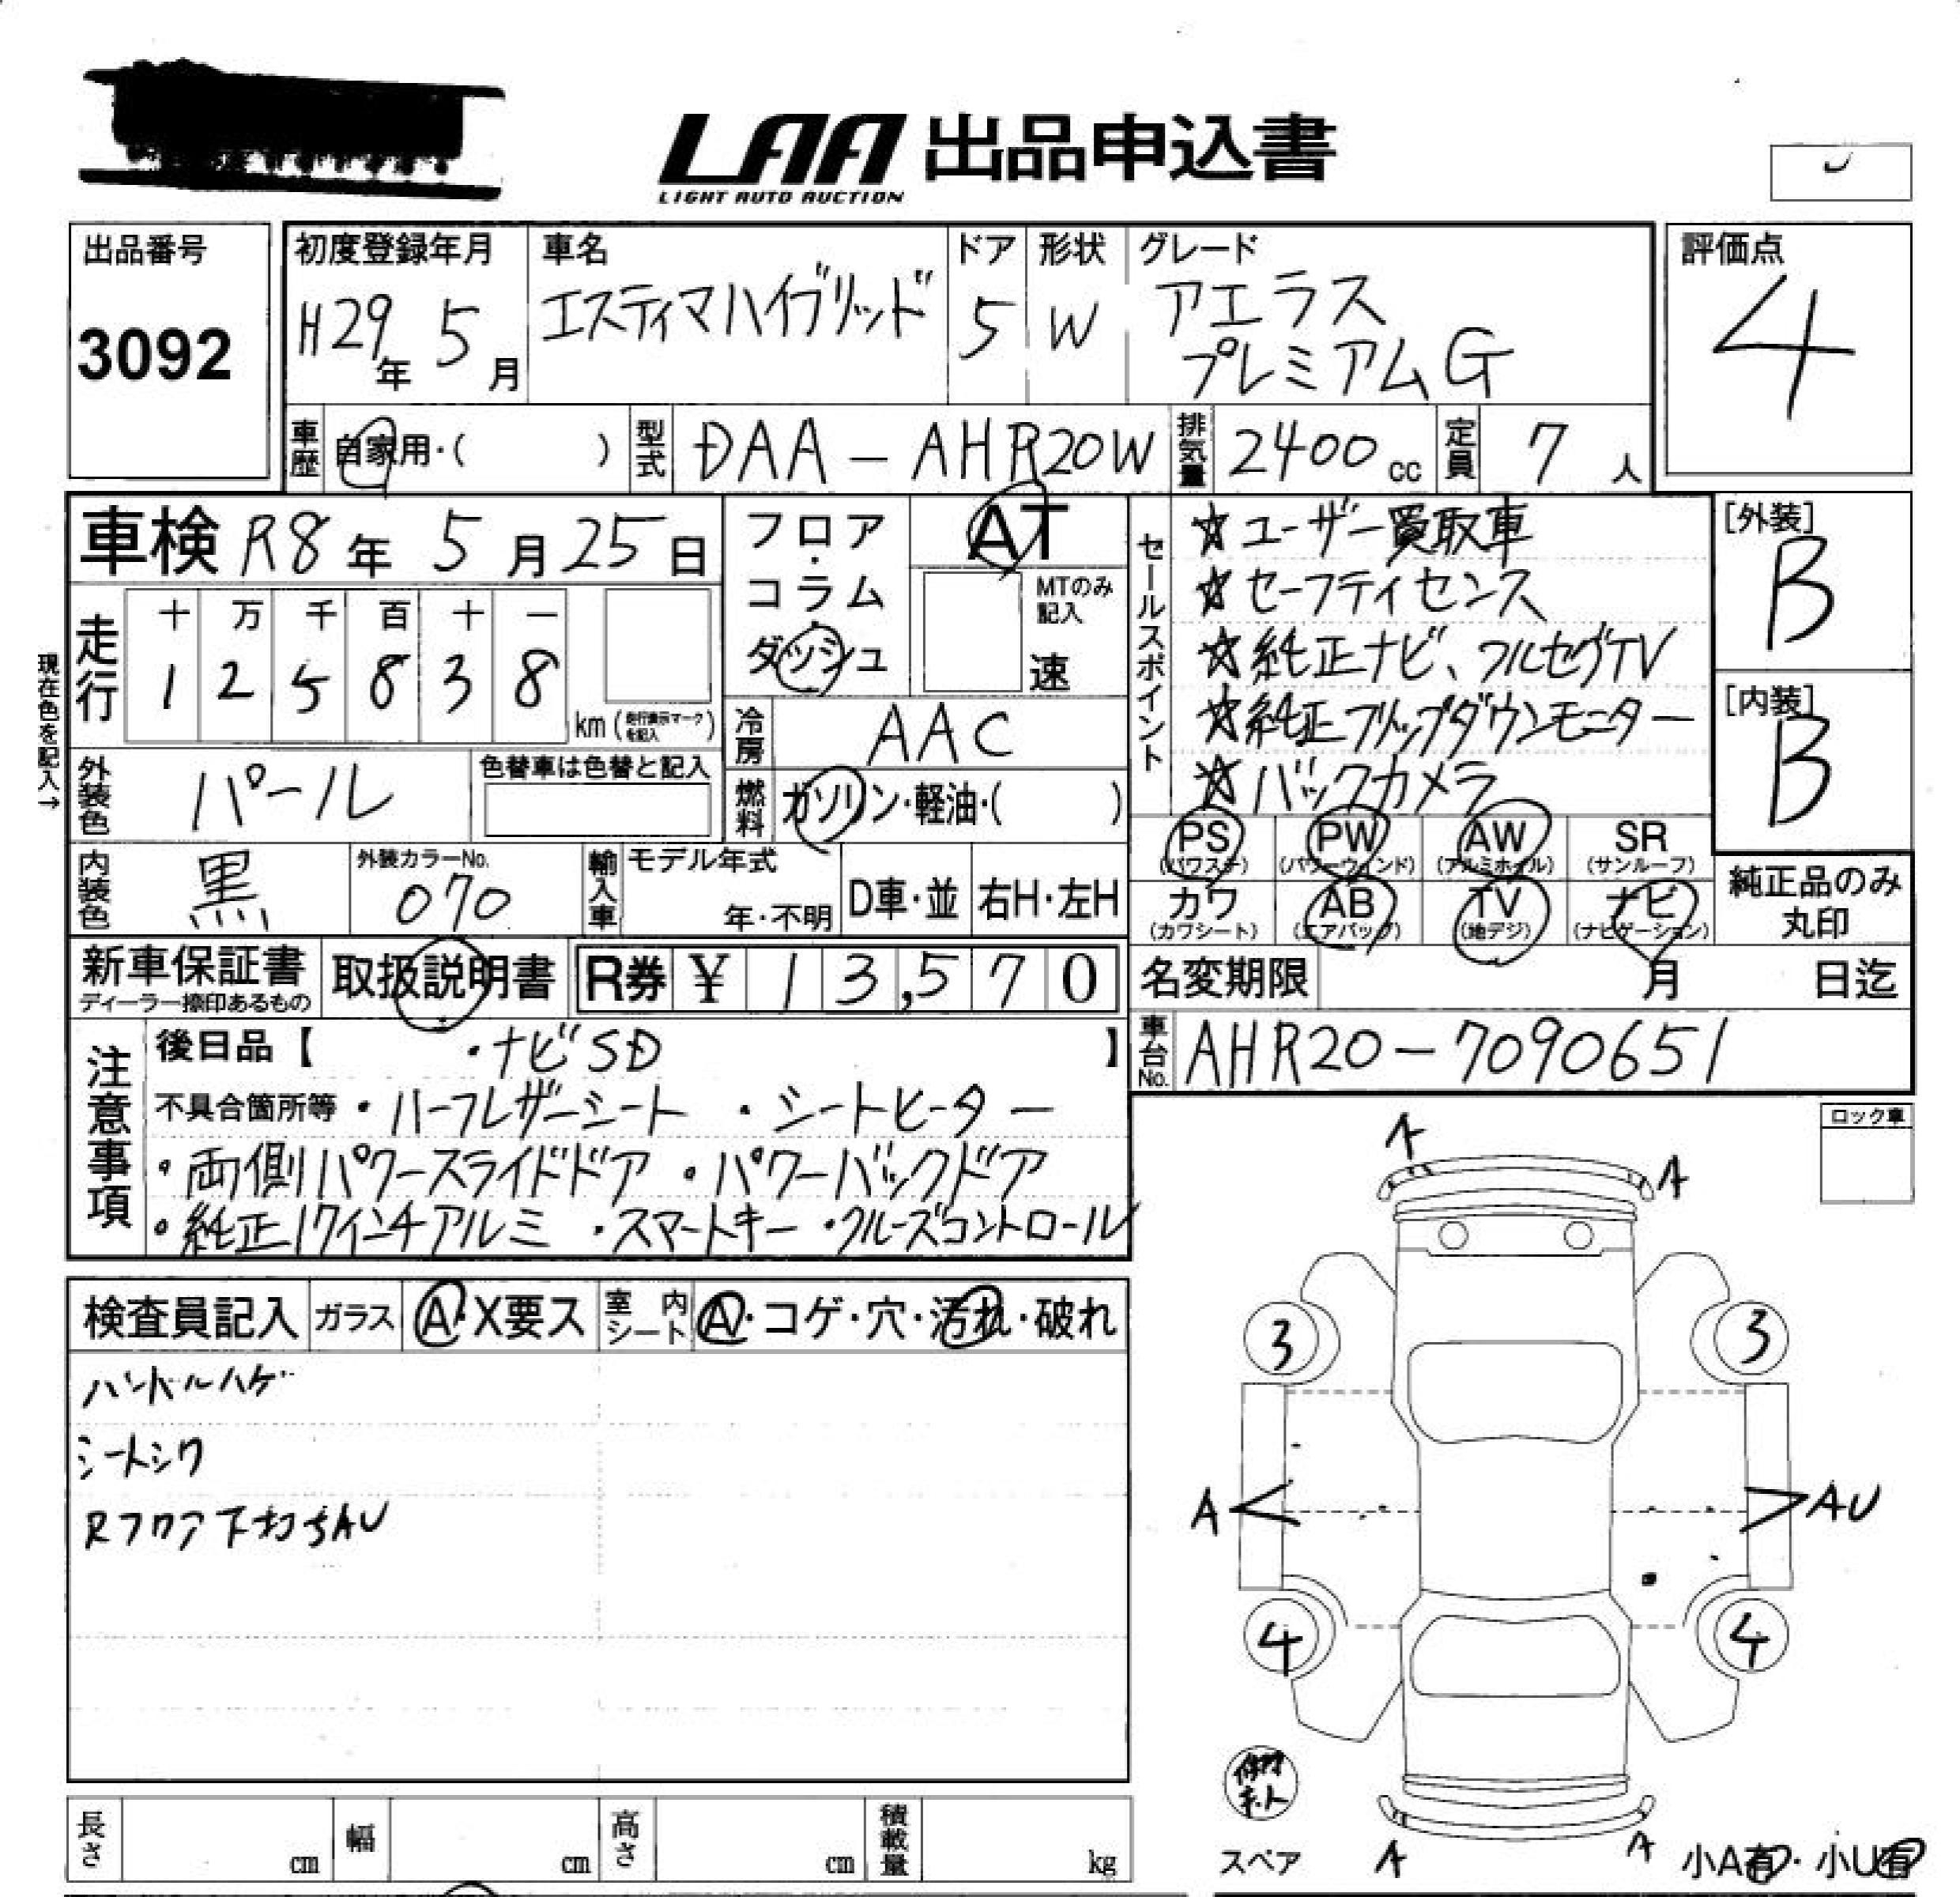 LAA 出品申込書
LIGHT AUTO AUCTION
出品番号
3092
初度登録年月
H29年 5月
車名
エスティマハイブリッド
ドア
5
形状
W
グレード
アエラス
プレミアムG
評価点
4
車歴 自家用・( )
型式 DAA-AHR20W
排気量 2400cc
定員 7人
車検 R8年 5月25日
現在色を記入→
走行
十 万 千 百 十 一
1 2 5 8 3 8
km (走行表示マークを記入)
フロア・コラム・ダッシュ
AT
MTのみ記入
速
冷房 AAC
燃料 ガソリン・軽油・( )
外装色 パール
色替車は色替と記入
内装色 黒
外装カラーNo.
070
輸入車 モデル年式
年・不明
D車・並
右H・左H
セールスポイント
☆ユーザー買取車
☆セーフティセンス
☆純正ナビ、フルセグTV
☆純正フリップダウンモニター
☆バックカメラ
[外装]
B
[内装]
B
PS (パワステ)
PW (パワーウィンド)
AW (アルミホイル)
SR (サンルーフ)
カワ (カワシート)
AB (エアバッグ)
TV (地デジ)
ナビ (ナビゲーション)
純正品のみ
丸印
新車保証書
ディーラー捺印あるもの
取扱説明書
R券 ¥ 13,570
名変期限 月 日迄
車台No. AHR20-7090651
注意事項
後日品【 ・ナビSD 】
不具合箇所等 ・ハーフレザーシート ・シートヒーター
・両側パワースライドドア ・パワーバックドア
・純正17インチアルミ ・スマートキー ・クルーズコントロール
ロック車
検査員記入
ガラス A・X要ス
室内シート A・コゲ・穴・汚れ・破れ
ハンドルハゲ
シートシワ
Rフロア下打ちAU
A
A
3
3
A
AU
4
4
スペア
A
A
小A有・小U有
長さ cm
幅 cm
高さ cm
積載量 kg